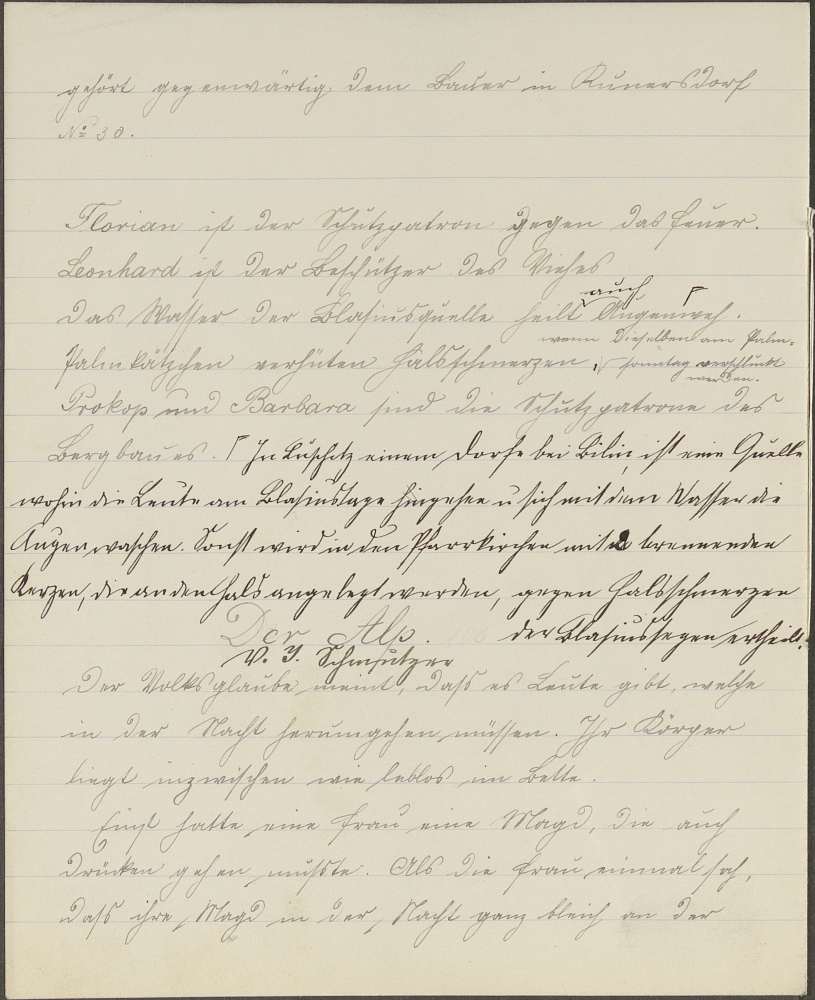 gehört gegenwärtig dem Bauer in Kunersdorf
No 30.
Florian ist der Schutzpatron gegen das Feuer.
Leonhard ist der Beschützer des Viehes
auch
Das Wasser der Blasiusquelle heilt Augenweh.
wenn dieselben am Palm-
Palmkätzchen verhüten Halsschmerzen, sonntag verschluckt
werden.
Prokop und Barbara sind die Schutzpatrone des
Bergbaues. In Luschitz einem Dorfe bei Bilin, ist eine Quelle
wohin die Leute am Blasiustage hingehen u sich mit dem Wasser die
Augen waschen. Sonst wird in den Pfarrkirchen mit 2 brennenden
Kerzen, die an den Hals angelegt werden, gegen Halsschmerzen
Der Alp. der Blasiussegen ertheilt.
V. J. Schmutzer
Der Volksglaube meint, dass es Leute gibt, welche
in der Nacht herumgehen müssen. Ihr Körper
liegt inzwischen wie leblos im Bette.
Einst hatte eine Frau eine Magd, die auch
drücken gehen musste. Als die Frau einmal sah,
dass ihre Magd in der Nacht ganz bleich an der